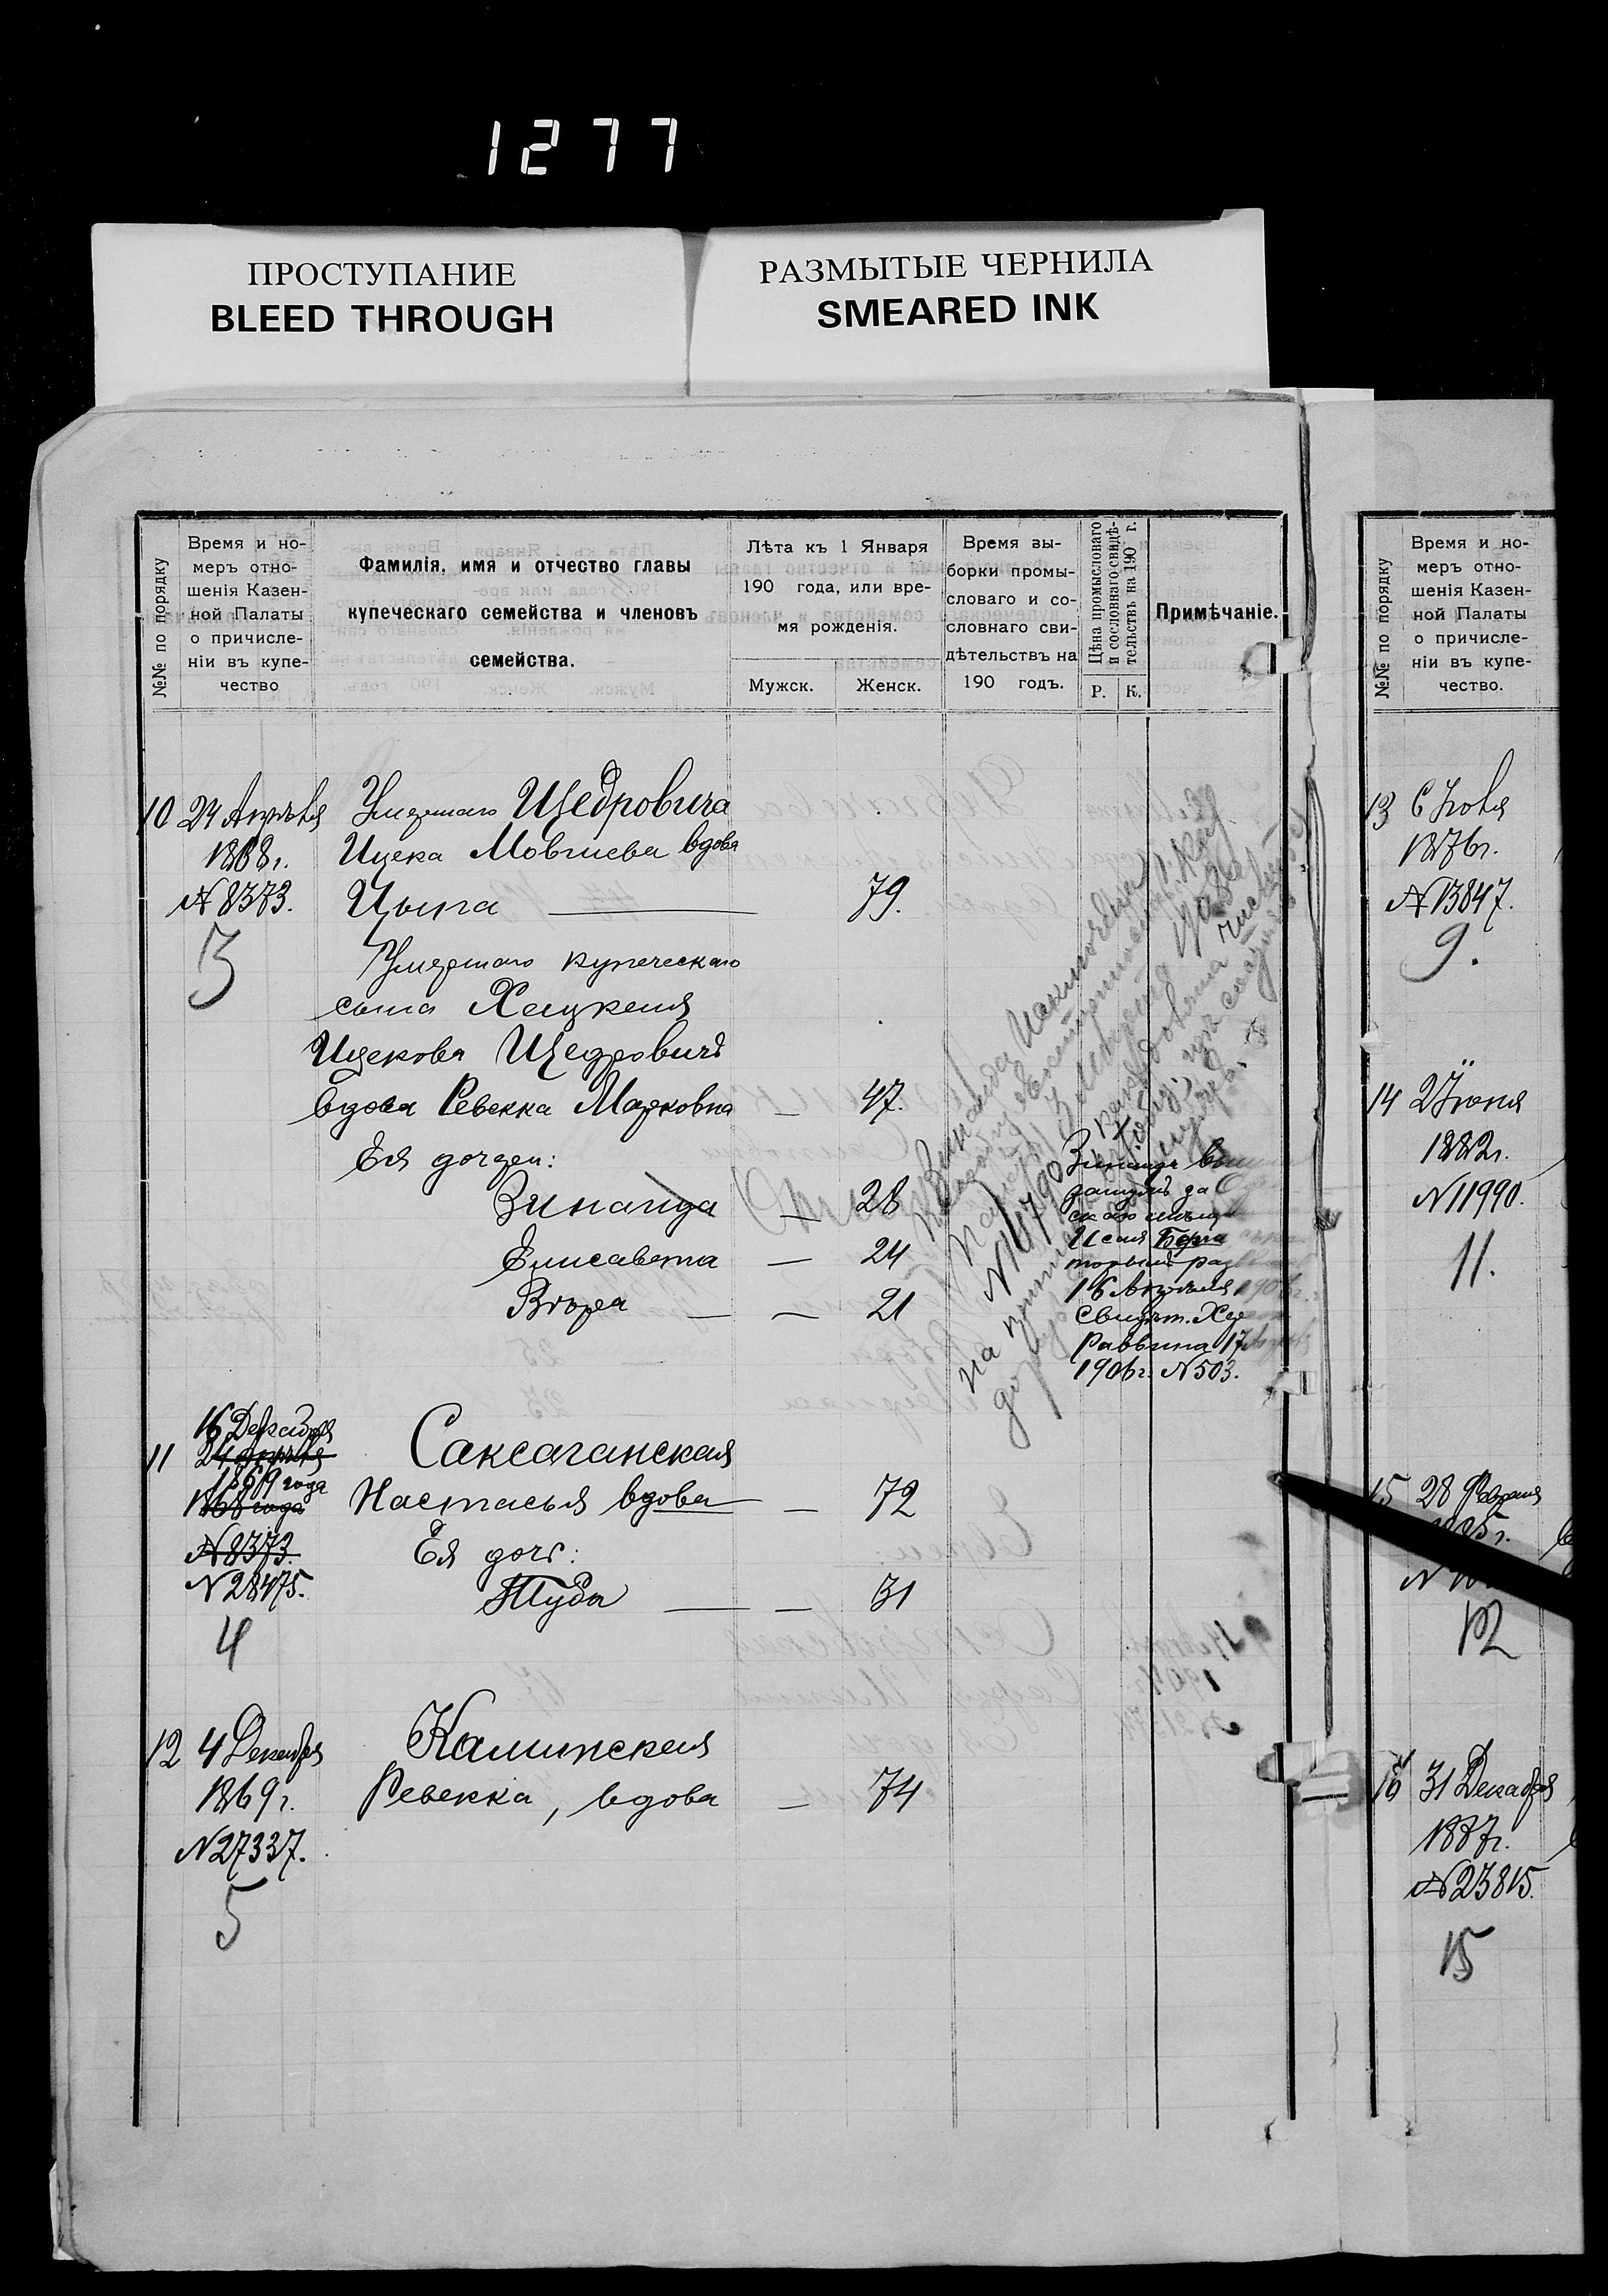 1277
ПРОСТУПАНИЕ
BLEED THROUGH
РАЗМЫТЫЕ ЧЕРНИЛА
SMEARED INK
№№ по порядку
Время и но-
меръ отно-
шенія Казен-
ной Палаты
о причисле-
ніи въ купе-
чество
Фамилія, имя и отчество главы
купеческаго семейства и членовъ
семейства.
Лѣта къ 1 Января
190 года, или вре-
мя рожденія.
Мужск.
Женск.
Время вы-
борки промы-
словаго и со-
словнаго сви-
дѣтельствъ на
190 годъ.
Цѣна промысловаго
и сословнаго свидѣ-
тельствъ на 190 г.
Р.
К.
Примѣчаніе.
10 24 Апрѣля
1868г.
№ 8373.
3
Умершаго Щедровича
Ицека Мовшева вдова
Цыпа 79.
Умершаго купеческаго
сына Хацкеля
Ицекова Щедровичъ
вдова Ревекка Марковна — 47.
Ея дочери:
Зинаида — 28
Елисавета — 24
Вѣра — 21
Зинаида
№ 16790
Зинаида
замужъ за
Исаія
16 Апрѣля 1906г.
Свидѣт.
Раввина 17
1906г. № 503.
11
16 Декабря
24 Апрѣля
1869 года
1868 года
№ 8373.
№ 28475.
4
Саксаганская
Настасья вдова — 72
Ея дочь:
Туба — 31
12 4 Декабря
1869г.
№ 27337.
5
Калинская
Ревекка, вдова — 74
№№ по порядку
Время и но-
меръ отно-
шенія Казен-
ной Палаты
о причисле-
ніи въ купе-
чество.
13 6
1876г.
№ 13847.
9.
14 2 Іюня
1882г.
№ 11990.
11.
15 28 Февраля
12
16 31 Декабря
1887г.
№ 23815.
15